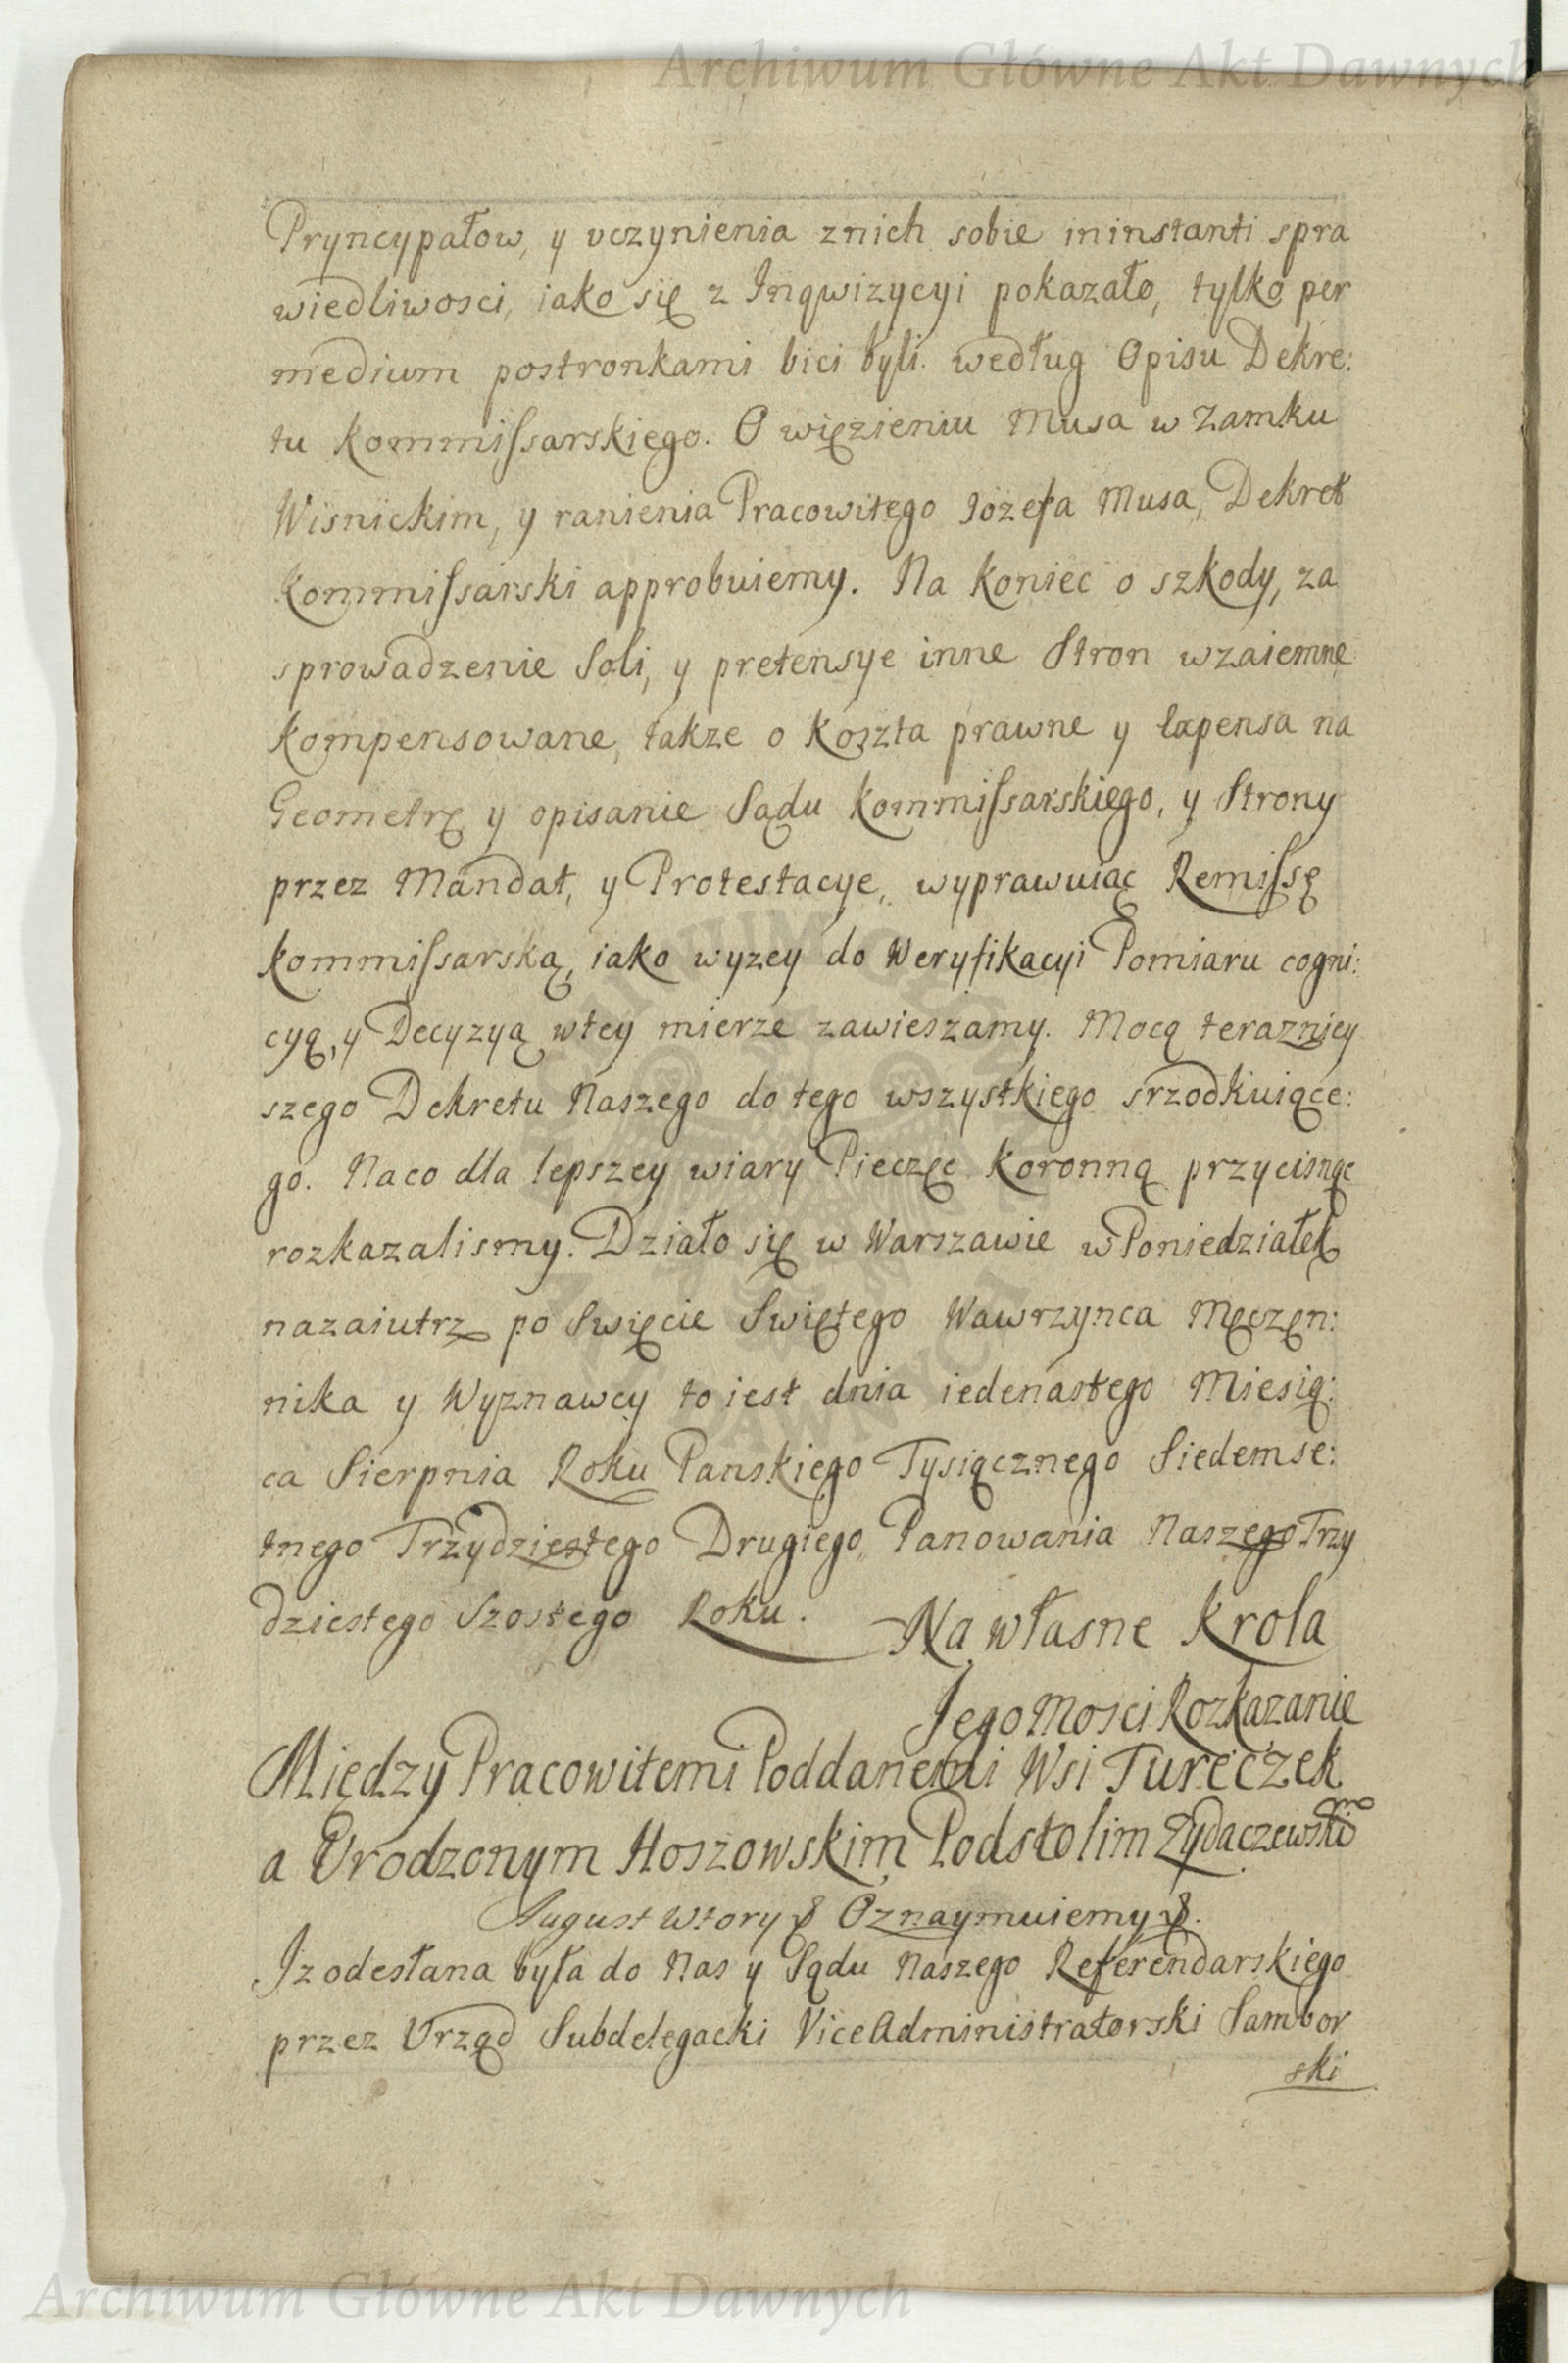 Archiwum Główne Akt Dawnych
Pryncypałow, y vczynienia znich sobie ininstanti spra
wiedliwosci, iako się z Inqwizycyi pokazało, tylko per
medium postronkami bici byli. według Opisu Dekre:
tu Kommiſsarskiego. O więzieniu Musa w Zamku
Wisnickim, y ranienia Pracowitego Iozefa Musa, Dekret
Kommiſsarski approbuiemy. Na koniec o szkody, za
sprowadzenie Soli, y pretensye inne Stron wzaiemne
kompensowane, takze o koszta prawne y Expensa na
Geometrę y opisanie Sądu Kommiſsarskiego, y Strony
przez Mandat, y Protestacye, wyprawuiąc Remiſsę
Kommiſsarską, iako wyzey do Weryfikacyi Pomiaru cogni:
cyą, y Decyzyą wtey mierze zawieszamy. Mocą teraznicy
szego Dekretu Naszego do tego wszystkiego srzodkuiące:
go. Naco dla lepszey wiary Pieczęc Koronną przycisnąc
rozkazalismy. Działo się w Warszawie w Poniedziałek
nazaiutrz po Swięcie Swiętego Wawrzynca Męczęn:
nika y Wyznawcy to iest dnia iedenastego Miesią:
ca Sierpnia Roku Panskiego Tysiącznego Siedemse:
tnego Trzydziestego Drugiego Panowania Naszego Trzy
dziestego Szostego Roku. Na własne Krola
Jego Mosci Rozkazanie
Między Pracowitemi Poddanemi Wsi Tureczek
a Vrodzonym Hoszowskim Podstolim Zydaczewskim
August Wtory & Oznaymuiemy &.
Iz odesłana była do Nas y Sądu Naszego Referendarskiego
przez Vrząd Subdelegacki ViceAdministratorski Sambor
ski
Archiwum Główne Akt Dawnych